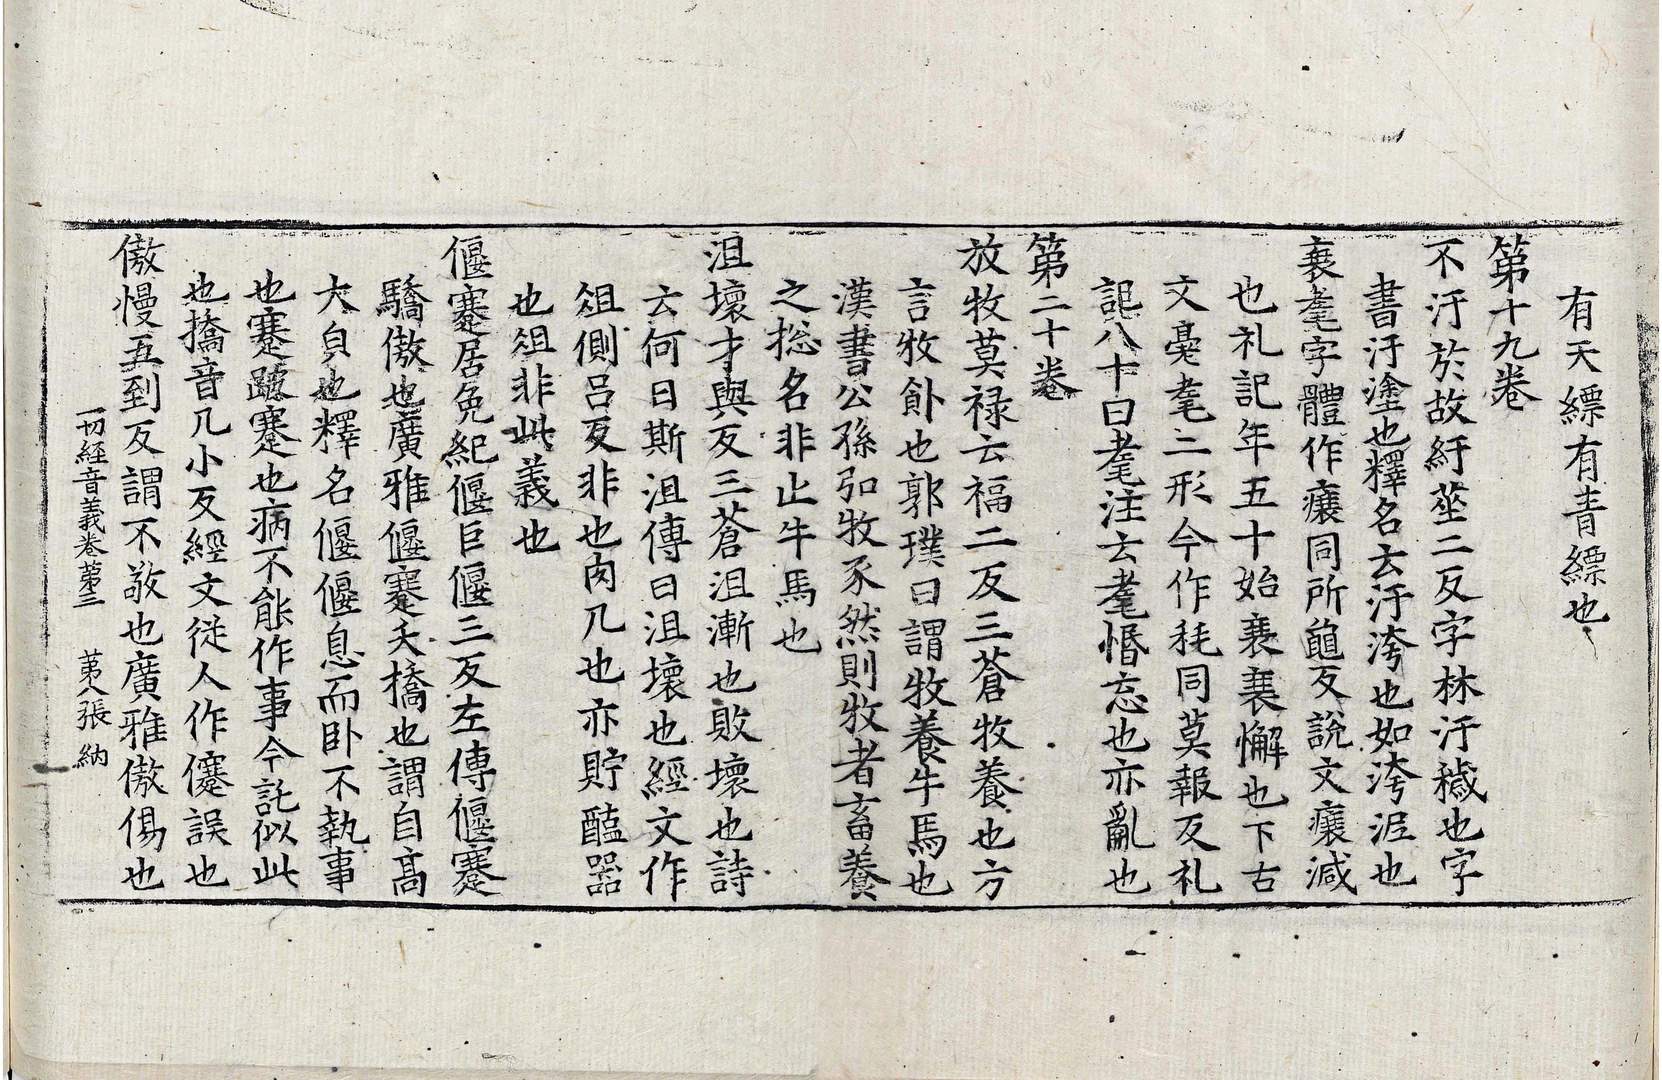 有天縹有青縹也
第十九卷
不汙於故紆莝二反字林汙穢也字
書汙塗也釋名云汙洿也如洿泥也
衰耄字體作癢同所龜反說文癢減
也礼記年五十始衰衰懈也下古
文耄耄二形今作秏同莫報反礼
記八十曰耄注云耄惛忘也亦亂也
第二十卷
放牧莫禄云福二反三蒼牧養也方
言牧飤也郭璞曰謂牧養牛馬也
漢書公孫弘牧豕然則牧者畜養
之捴名非止牛馬也
沮壞才與反三蒼沮漸也敗壞也詩
云何日斯沮傳曰沮壞也經文作
俎側呂反非也肉几也亦貯醢器
也俎非此義也
偃蹇居免紀偃巨偃三反左傳偃蹇
驕傲也廣雅偃蹇夭撟也謂自高
大皃也釋名偃偃息而卧不執事
也蹇跛蹇也病不能作事今託似此
也撟音几小反經文從人作僞誤也
傲慢五到反謂不敬也廣雅傲傷也
一切経音義卷苐三 苐八張 納